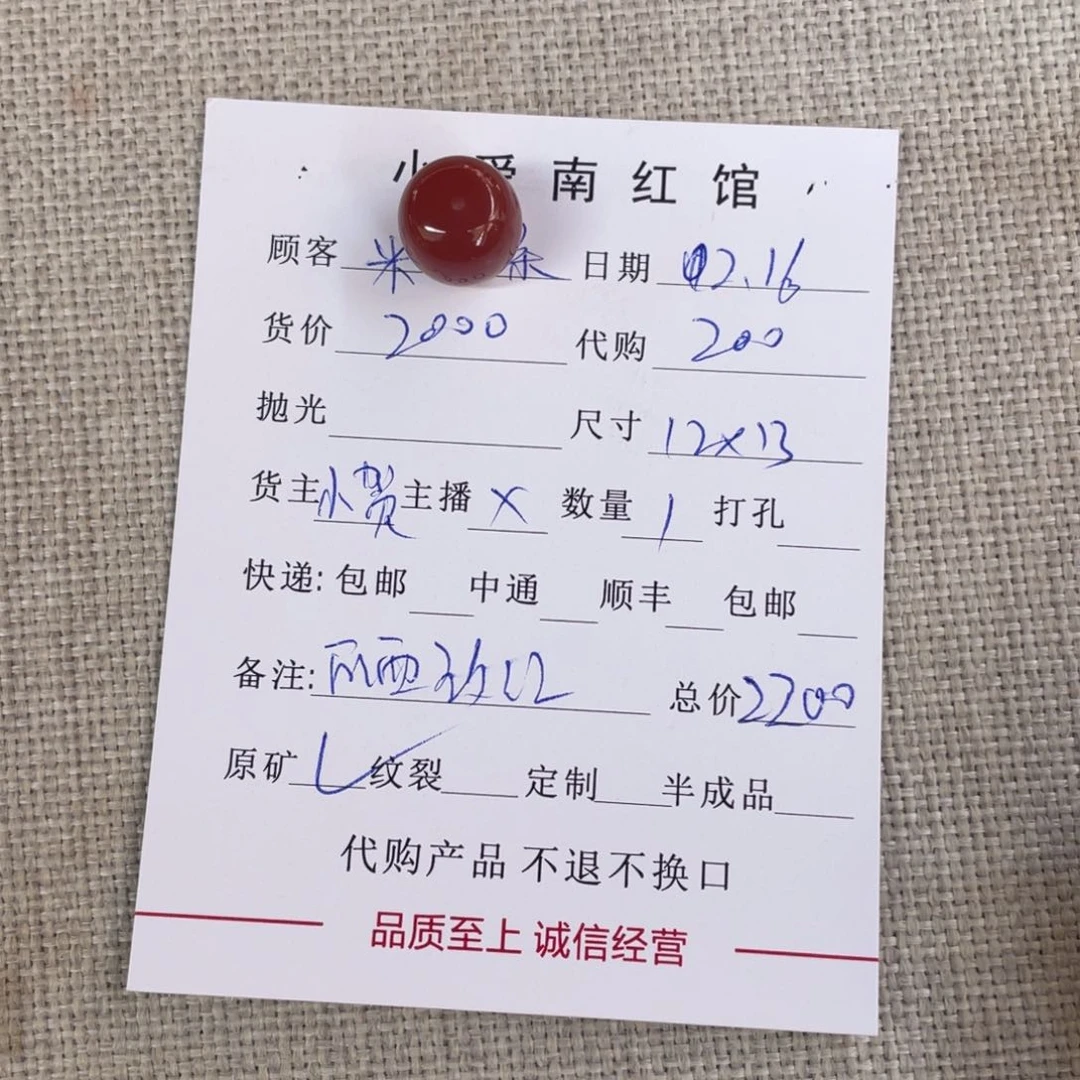 小 南红馆
顾客 米 日期 02.16
货价 2000 代购 200
抛光 尺寸 12x13
货主 小贺 主播 X 数量 1 打孔
快递: 包邮 中通 顺丰 包邮
备注: 总价 2200
原矿 ✓ 纹裂 定制 半成品
代购产品 不退不换口
品质至上 诚信经营